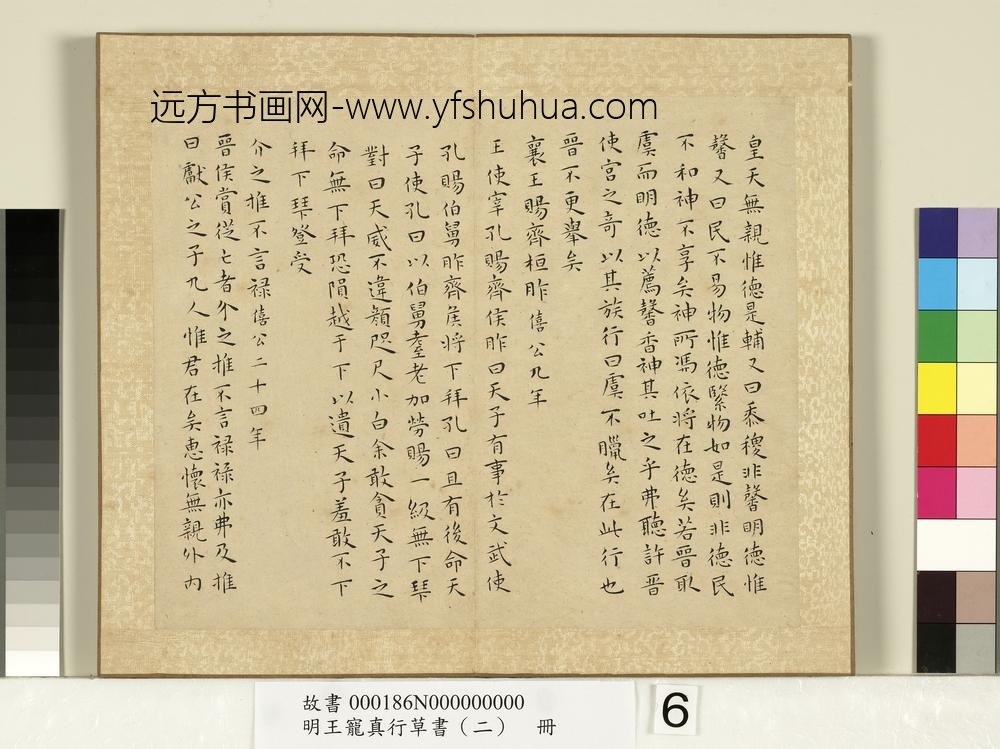 远方书画网-www.yfshuhua.com
皇天無親惟德是輔又曰黍稷非馨明德惟
馨又曰民不易物惟德繄物如是則非德民
不和神不享矣神所馮依將在德矣若晉取
虞而明德以薦馨香神其吐之乎弗聽許晉
使宮之奇以其族行曰虞不臘矣在此行也
晉不更舉矣
襄王賜齊桓胙僖公九年
王使宰孔賜齊侯胙曰天子有事於文武使
孔賜伯舅胙齊侯將下拜孔曰且有後命天
子使孔曰以伯舅耋老加勞賜一級無下拜
對曰天威不違顏咫尺小白余敢貪天子之
命無下拜恐隕越于下以遺天子羞敢不下
拜下拜登受
介之推不言祿僖公二十四年
晉侯賞從亡者介之推不言祿祿亦弗及推
曰獻公之子九人惟君在矣惠懷無親外內
故書 000186N000000000
明王寵真行草書（二） 冊
6